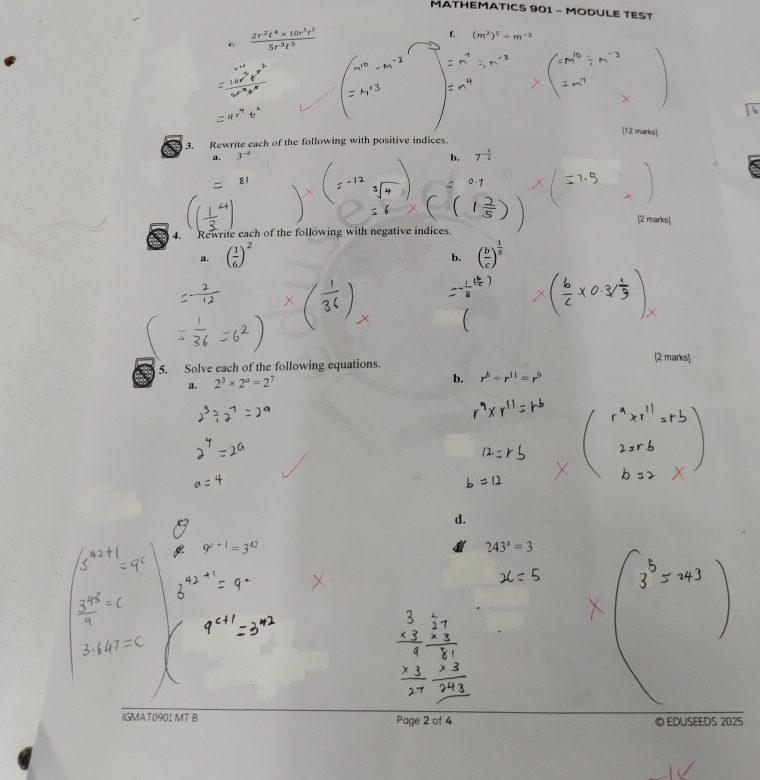 MATHEMATICS 901 – MODULE TEST
e. 2r²t⁴ × 10r⁵t³ / 5r³t⁵
f. (m²)⁵ ÷ m⁻³
= 4r⁴t²
m¹⁰ - m⁻³
= m¹³
= m⁷ ÷ m⁻³
= m⁴
= m¹⁰ ÷ m⁻³
= m⁷
[12 marks]
3. Rewrite each of the following with positive indices.
a. 3⁻⁴
b.
= 81
= -12
∛4
= 6
(1/3⁴)
= 0.7
(1 2/5)
= 1.5
[2 marks]
4. Rewrite each of the following with negative indices.
a. (1/6)²
b. (b/c)^(1/3)
= 2/12
(1/36)
= 1/36 = 6²
(b/c × 0.3/
[2 marks]
5. Solve each of the following equations.
a. 2³ × 2ᵃ = 2⁷
b. rᵇ ÷ r¹¹ = r⁹
2³ ÷ 2⁷ = 2ᵃ
2⁴ = 2a
a = 4
r⁹ × r¹¹ = rᵇ
12 = rb
b = 12
r⁹ × r¹¹ = rb
2 = rb
b = 2
c. 9ᶜ⁺¹ = 3⁴²
d.
243ˣ = 3
3⁴²⁺¹ = 9ᶜ
3⁴³/9 = c
3.647 = c
3⁴²⁺¹ = 9ᶜ
9ᶜ⁺¹ = 3⁴²
x = 5
3⁵ = 243
3
× 3
9
× 3
27
2
27
× 3
81
× 3
243
IGMAT0901 MT B
Page 2 of 4
© EDUSEEDS 2025